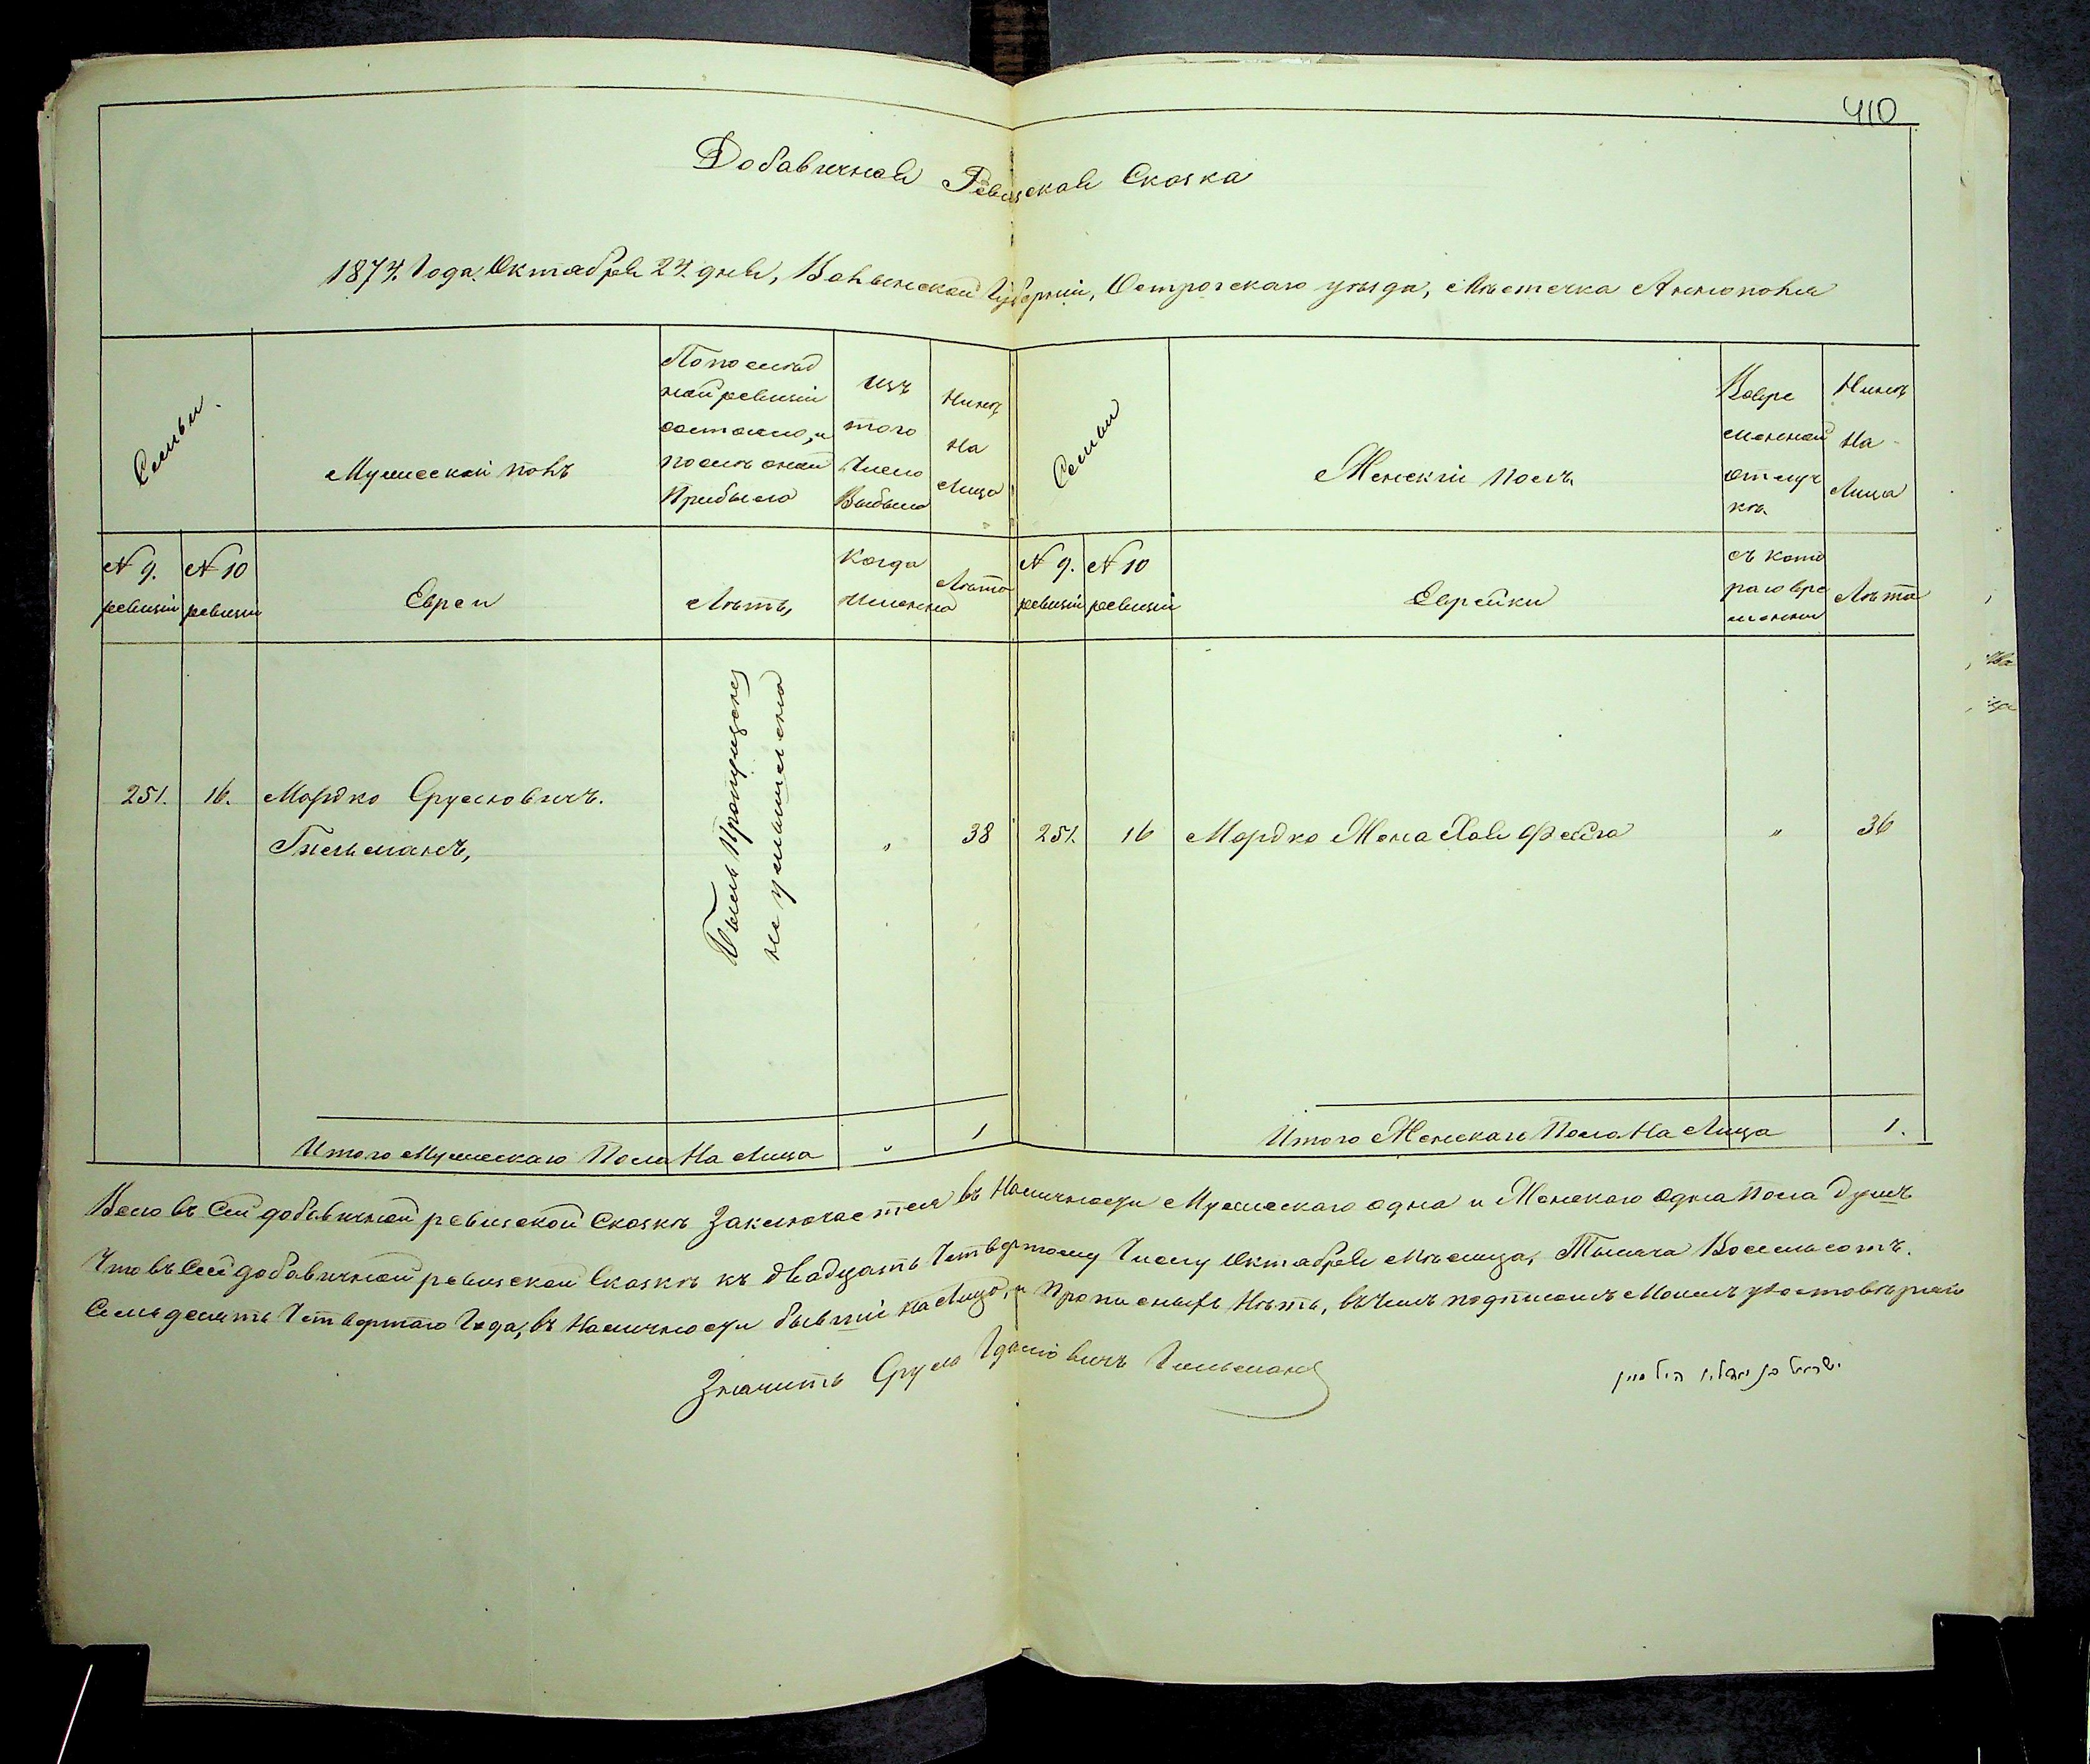 410
Добавичная Ревизская Сказка
1874. Года Октября 24 дня, Волынской Губерніи, Острогскаго уезда, Местечка Аннополя
Семьи.
Мужеской полъ
По послѣд
ней ревизіи
состояло, и
послѣ оной
Прибыло
изъ
того
Число
Выбыло
Нинѣ
На
Лицо
Семьи
Женскій Полъ
Вовре
менной
отлуч
кѣ
Нинѣ
На
Лица
№ 9.
ревизіи
№ 10
ревизіи
Евреи
Лѣтъ,
Когда
Именно
Лѣта
№ 9.
ревизіи
№ 10
ревизіи
Еврейки
съ кото
раго вре
мени
Лѣта
251.
16.
Мордко Сруловичъ.
Гительманъ,
Былъ Пропущенъ
не умышленно
"
38
251.
16
Мордко Жена Хая Фейга
"
36
Итого Мужескаго Пола На Лицо
"
1
Итого Женскаго Пола На Лицо
1.
Всего въ Сей добавичной ревизской Сказкѣ Заключается въ Наличности Мужескаго одна и Женскаго Одна Пола Душъ
Что въ Сей добавичной ревизской Сказкѣ къ двадцать Четвертому Числу Октября Мѣсяца, Тысяча Восемьсотъ.
Семьдесять Четвертаго Года, въ Наличности бывшіе на Лицо, и Прописныхъ Нѣтъ, въ чемъ подписомъ Моимъ удостовѣряю
Значитъ Срулъ Гительманъ